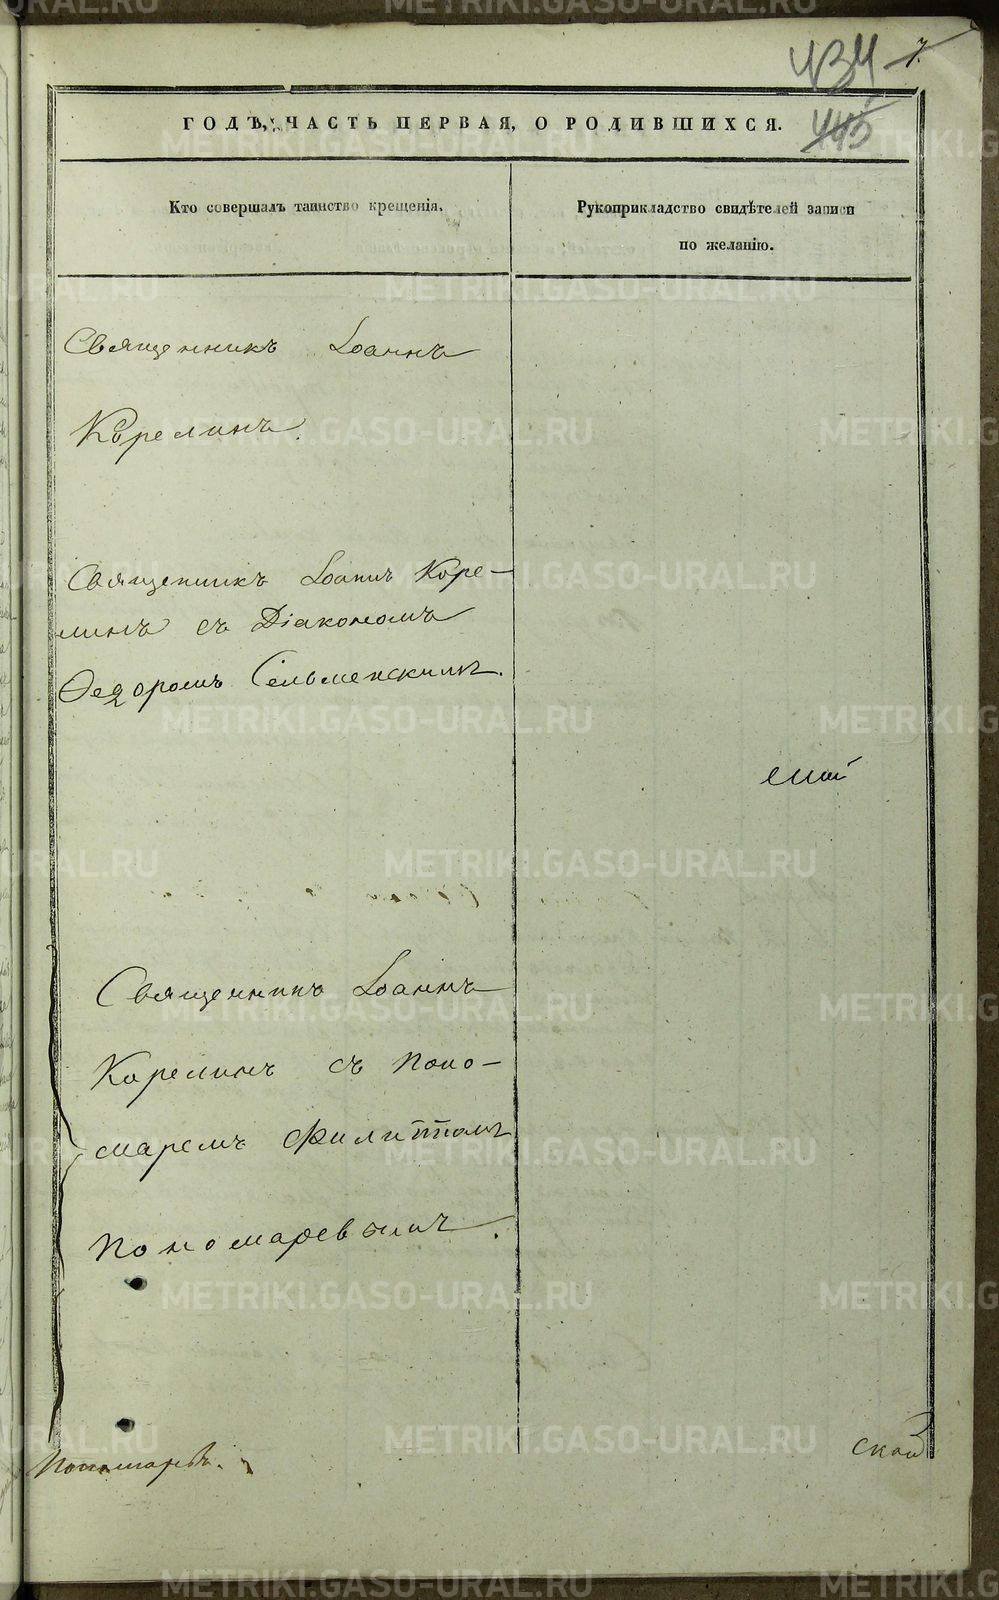 434 7.
445
ГОДЪ, ЧАСТЬ ПЕРВАЯ, О РОДИВШИХСЯ.
Кто совершалъ таинство крещенія.
Рукоприкладство свидѣтелей записи
по желанію.
Священникъ Іоаннъ
Корелинъ.
Священникъ Іоаннъ Коре-
линъ съ Діакономъ
Ѳедоромъ
Священникъ Іоаннъ
Корелинъ съ Поно-
маремъ Филиппомъ
Пономаревымъ.
Пономаревъ.
ской
METRIKI.GASO-URAL.RU